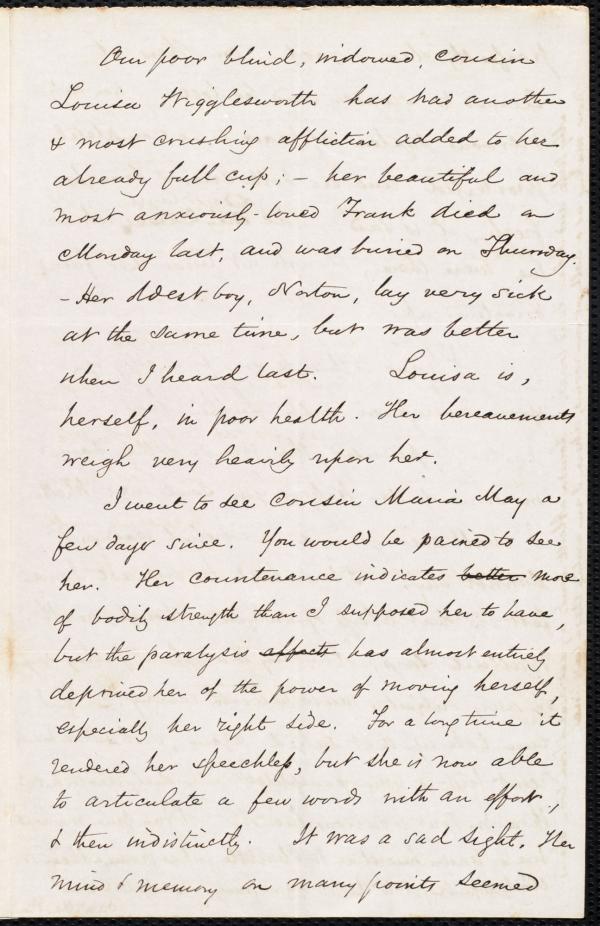 Our poor blind, widowed, cousin
Louisa Wigglesworth has had another
& most crushing affliction added to her
already full cup; – her beautiful and
most anxiously-loved Frank died on
Monday last, and was buried on Thursday.
– Her oldest boy, Norton, lay very sick
at the same time, but was better
when I heard last. Louisa is,
herself, in poor health. Her bereavements
weigh very heavily upon her.
I went to see cousin Maria May a
few days since. You would be pained to see
her. Her countenance indicates better more
of bodily strength than I supposed her to have,
but the paralysis affects has almost entirely
deprived her of the power of moving herself,
especially her right side. For a long time it
rendered her speechless, but she is now able
to articulate a few words with an effort,
& then indistinctly. It was a sad sight. Her
mind & memory on many points seemed